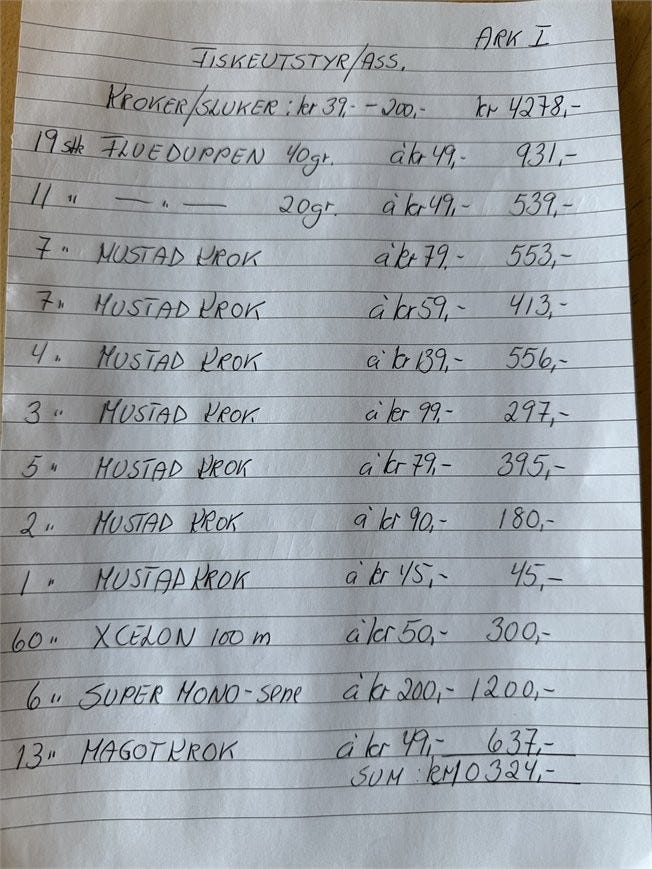 ARK I
FISKEUTSTYR/ASS.
KROKER/SLUKER: kr 39,- - 200,- kr 4278,-
19 stk FLUEDUPPEN 40gr. à kr 49,- 931,-
11 " — " — 20gr. à kr 49,- 539,-
7 " MUSTAD KROK à kr 79,- 553,-
7 " MUSTAD KROK à kr 59,- 413,-
4 " MUSTAD KROK à kr 139,- 556,-
3 " MUSTAD KROK à kr 99,- 297,-
5 " MUSTAD KROK à kr 79,- 395,-
2 " MUSTAD KROK à kr 90,- 180,-
1 " MUSTAD KROK à kr 45,- 45,-
60 " XCELON 100 m à kr 50,- 300,-
6 " SUPER MONO-SENE à kr 200,- 1200,-
13 " MAGOTKROK à kr 49,- 637,-
SUM: kr 10324,-